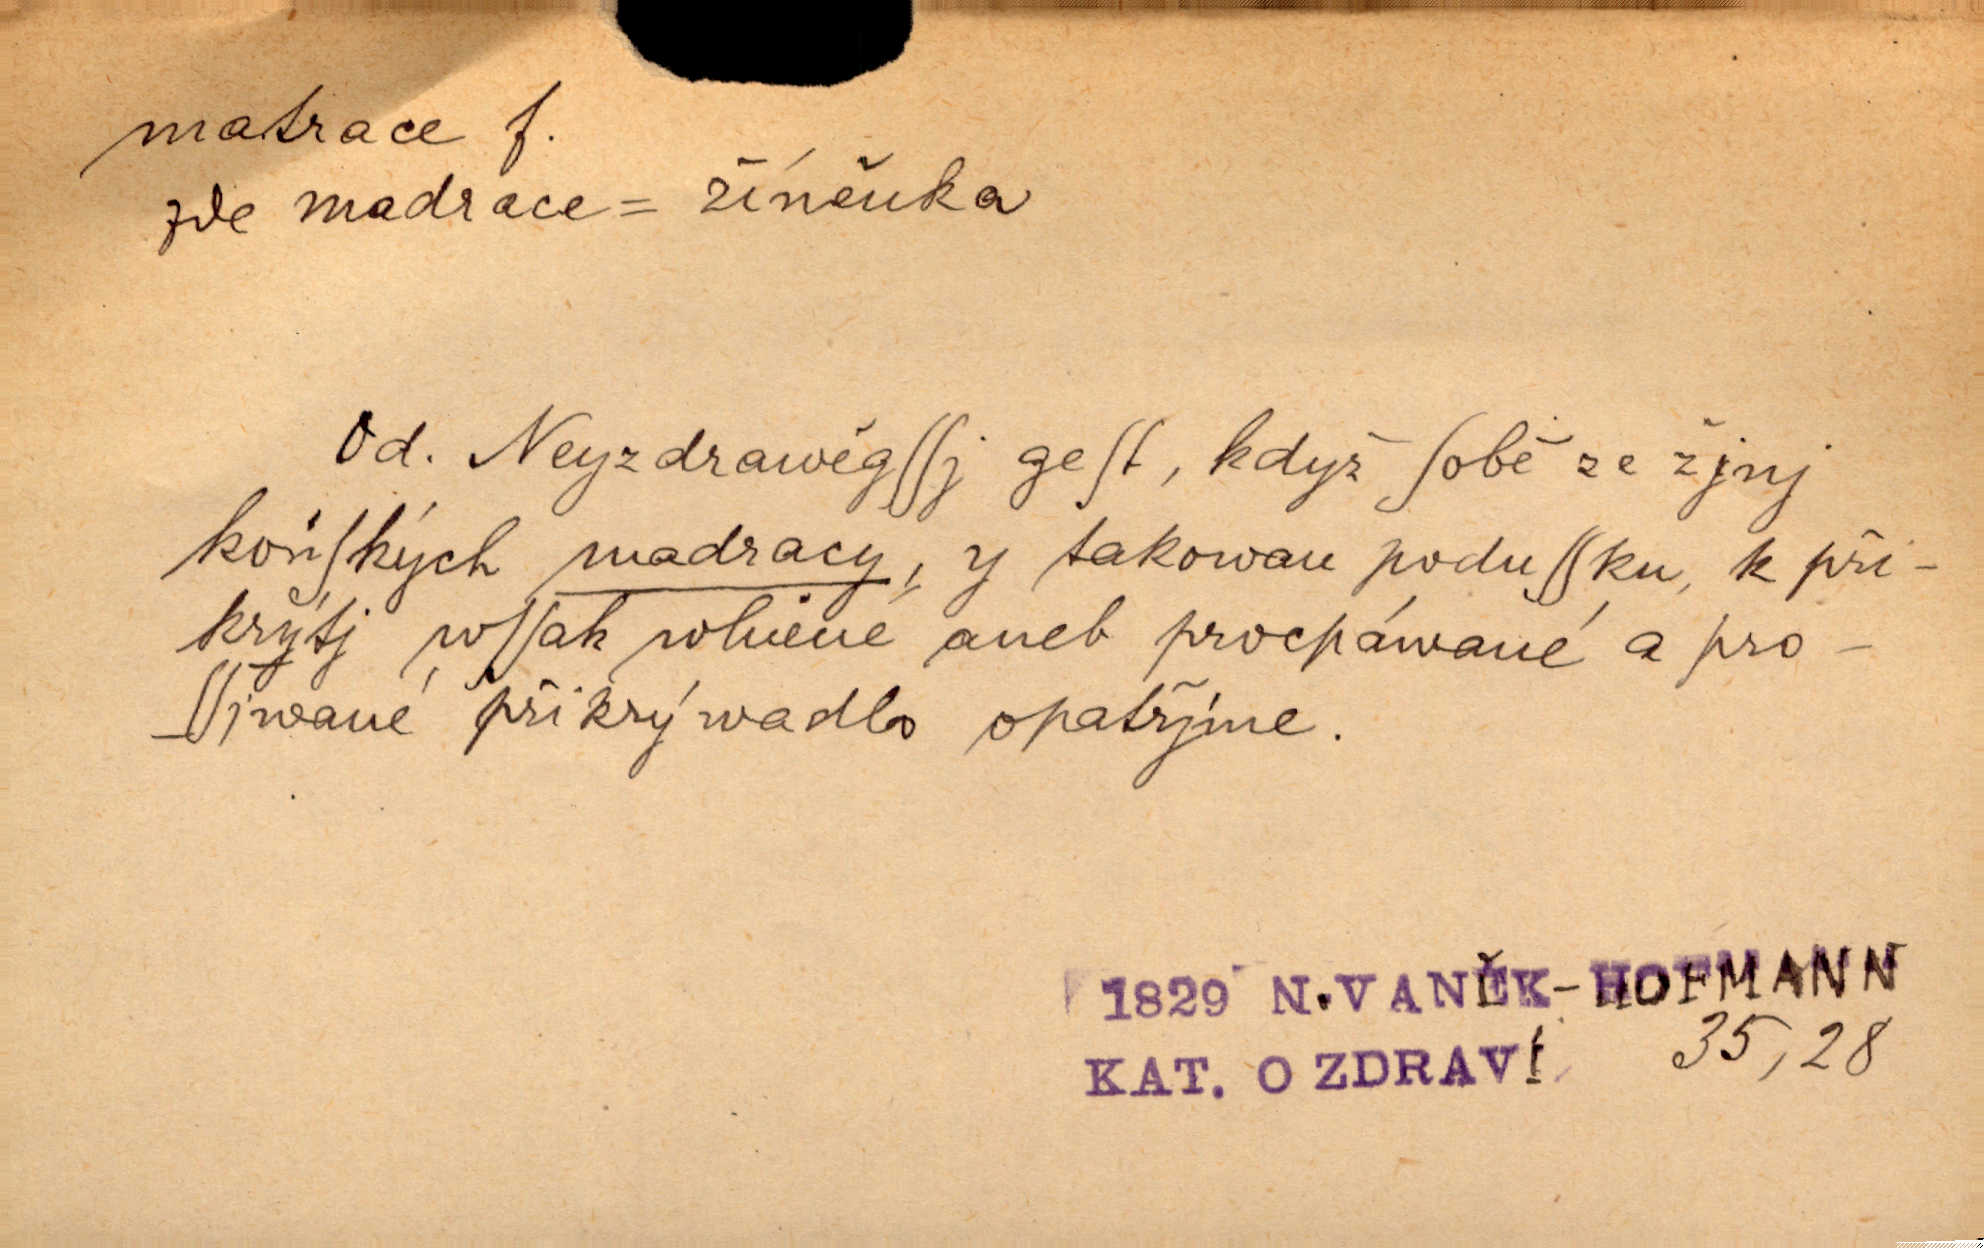 matrace f.
zde madrace = žíněnka
Od. Neyzdrawěgſſj geſt, když ſobě ze žjnj
koňſkých madracy, y takowau poduſſku, k při-
krytj wſſak wlněné aneb procpáwané a pro-
ſſjwané přikrýwadlo opatřjme.
1829 N. VANĚK-HOFMANN
KAT. O ZDRAVÍ 35, 28